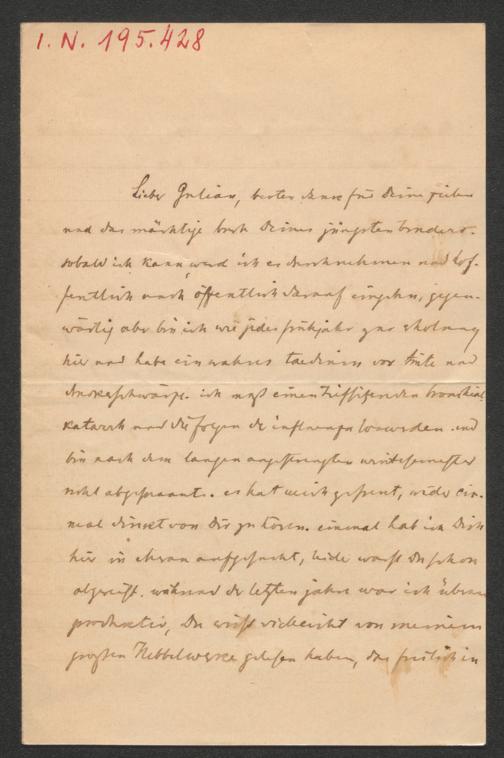 I. N. 195.428
Lieber Julian, besten dank für Deine zeilen
und das mächtige buch Deines jüngsten bruders.
sobald ich kann, werd ich es durchnehmen und hof-
fentlich auch öffentlich darauf eingehen, gegen-
wärtig aber bin ich wie jedes frühjahr zur erholung
hier und habe ein wahres taedium vor tinte und
druckerschwärze. ich muß einen bronchial-
katarrh und die folgen der influenza loswerden und
bin nach dem langen angestrengten wintersemester
recht abgespannt. es hat mich gefreut, wider ein-
mal direct von Dir zu hören. einmal hab ich Dich
hier in Meran aufgesucht, leider warst Du schon
abgereist. während der letzten jahre war ich überaus
productiv, Du wirst vielleicht von meinem
großen Hebbelwerke gelesen haben, das freilich in